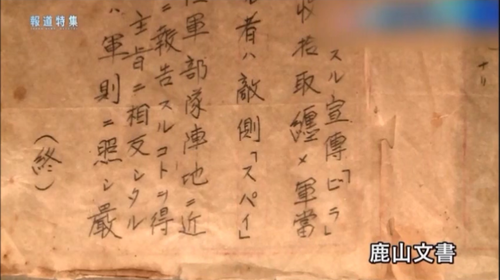 報道特集
ナリ
スル宣傳「ビラ」
拾取纒メ軍當
者ハ敵側「スパイ」
軍部隊陣地ニ近
ニ報告スルコトヲ得
主旨ニ相反シタル
ハ軍則ニ照シ嚴
(終)
鹿山文書